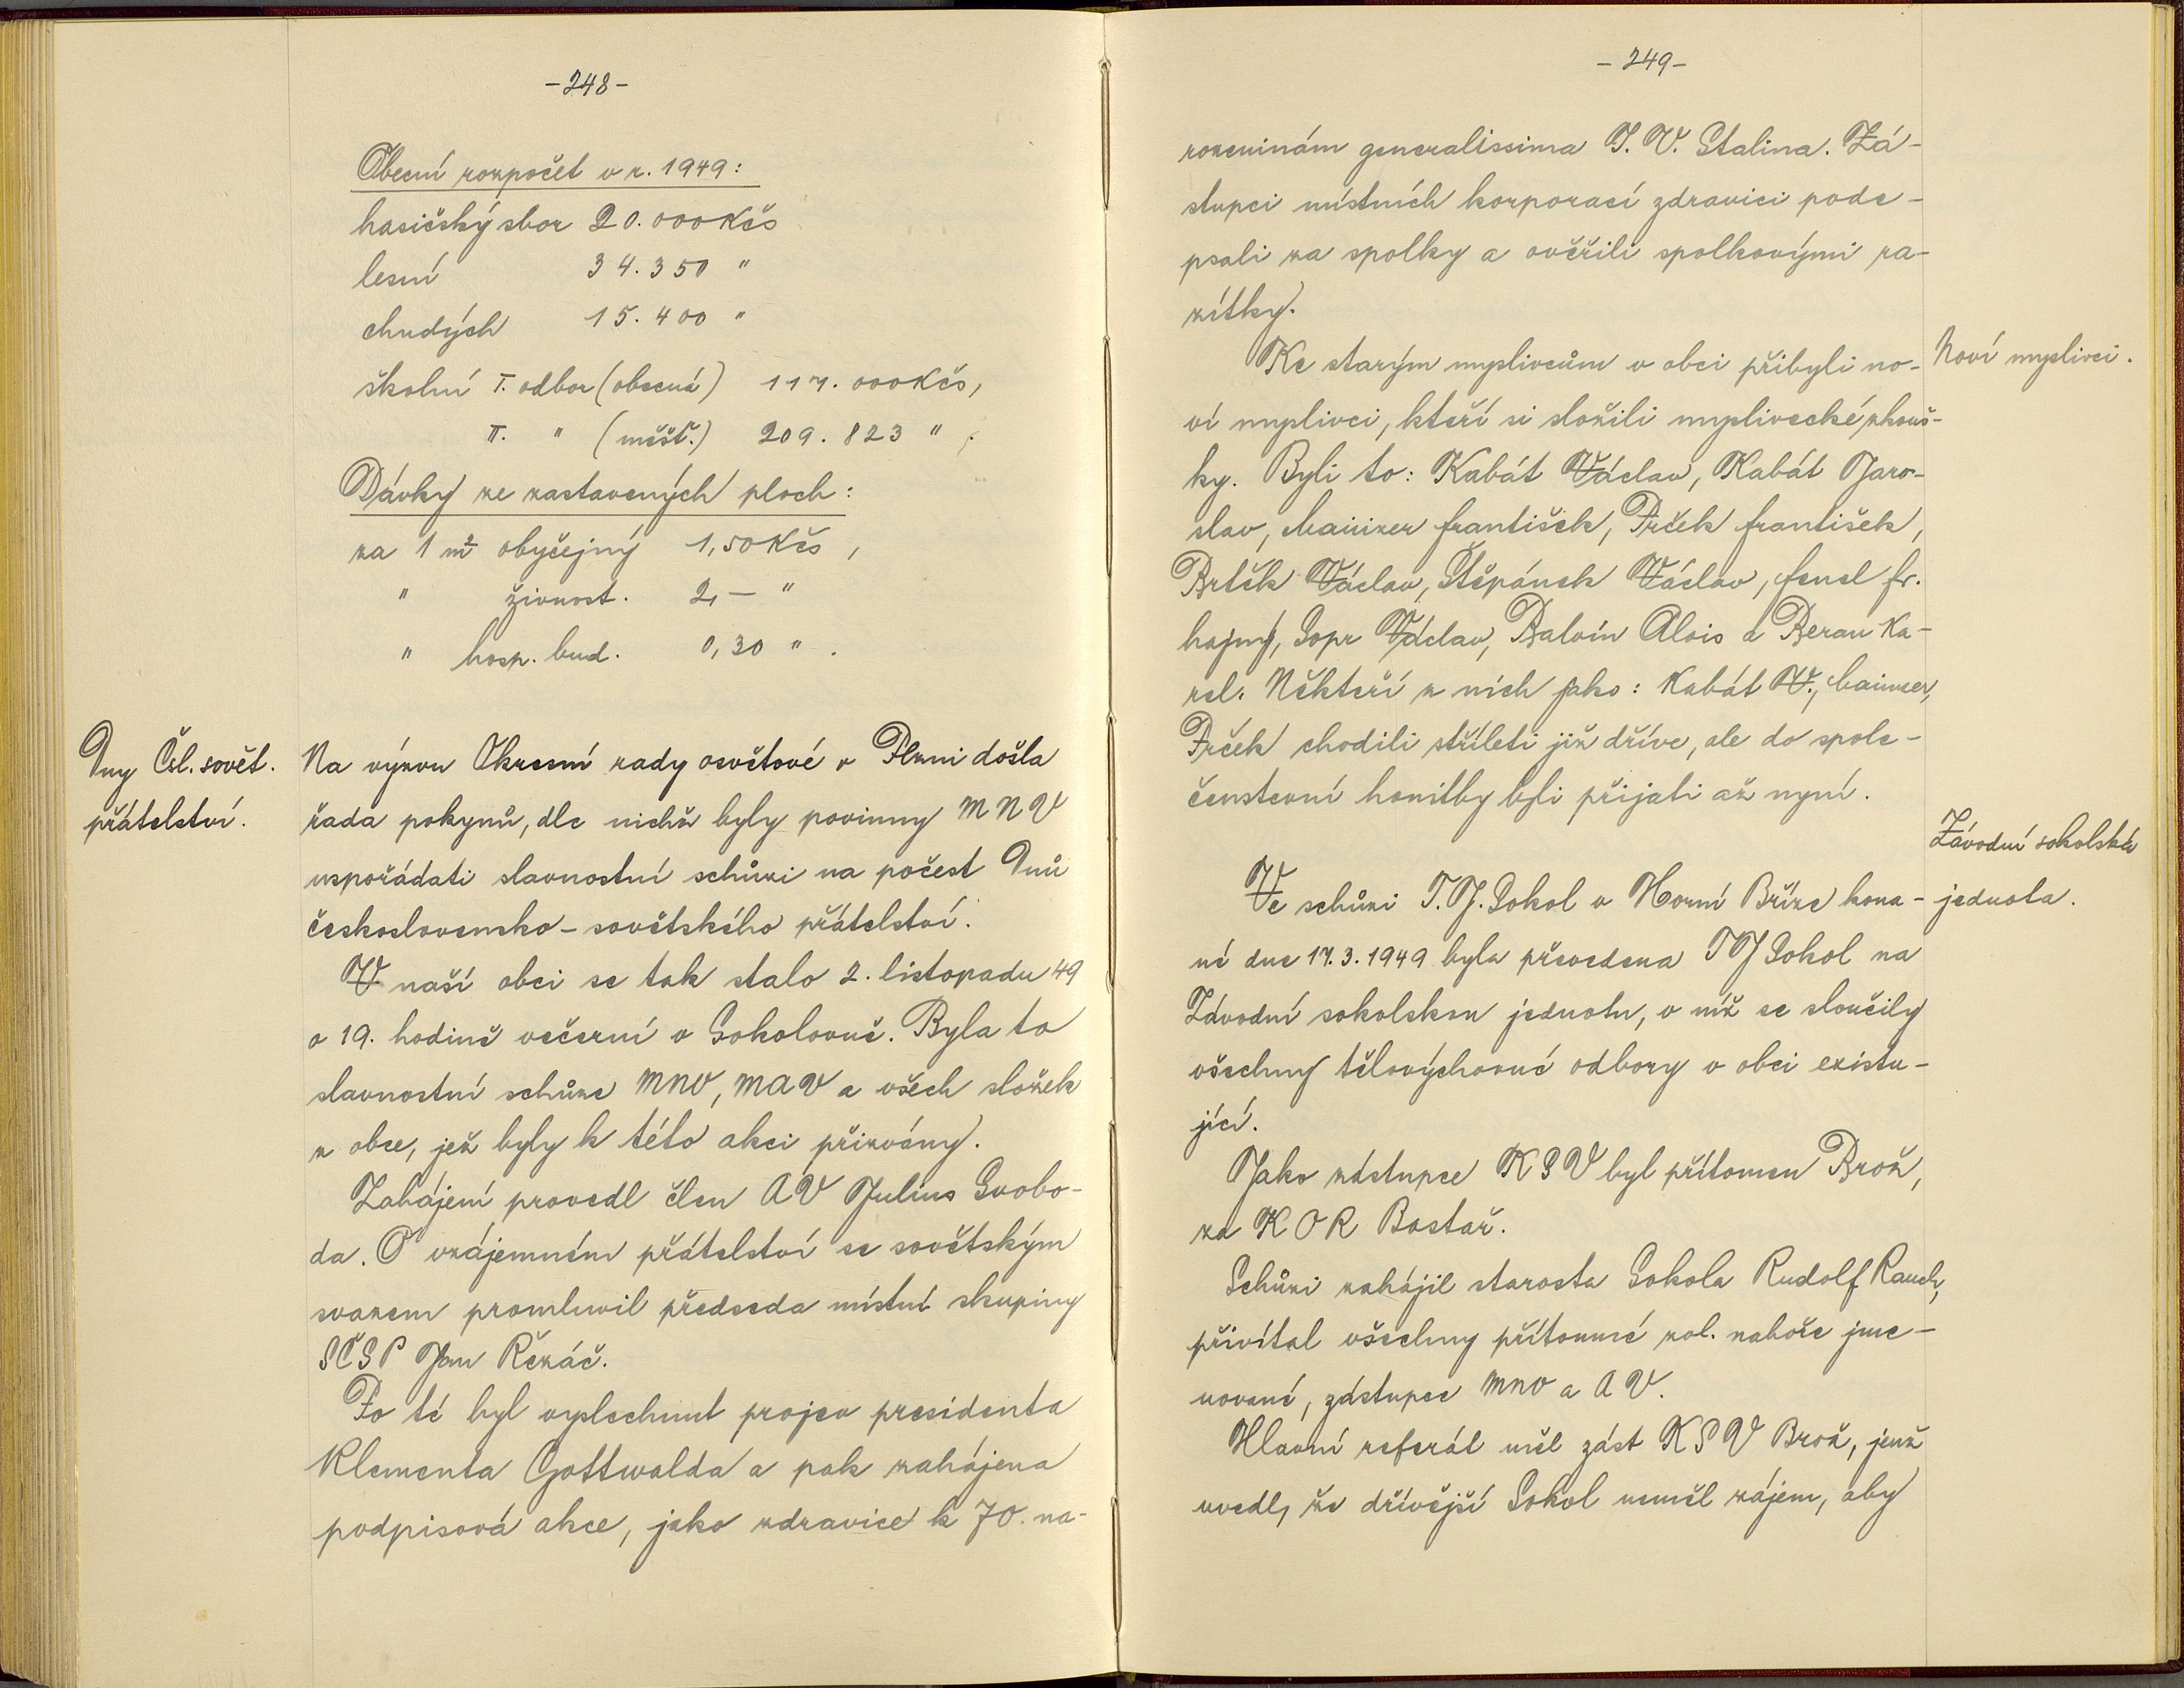 -248-
Obecní rozpočet v r. 1949:
hasičský sbor 20.000 Kčs
lesní 34.350 "
chudých 15.400 "
školní I. odbor (obecná) 117.000 Kčs,
II. " (měšť.) 209.823 " .
Dávky ze zastavených ploch:
za 1 m² obyčejný 1,50 Kčs,
" živnost. 2,— "
" hosp. bud. 0,30 " .
Dny Čsl. sovět.
přátelství.
Na výzvu Okresní rady osvětové v Plzni došla
řada pokynů, dle nichž byly povinny MNV
uspořádati slavnostní schůzi na počest Dnů
československo-sovětského přátelství.
V naší obci se tak stalo 2. listopadu 49
o 19. hodině večerní v Sokolovně. Byla to
slavnostní schůze MNV, MAV a všech složek
z obce, jež byly k této akci přizvány.
Zahájení provedl člen AV Julius Svobo-
da. O vzájemném přátelství se sovětským
svazem promluvil předseda místní skupiny
SČSP Jan Řezáč.
Po té byl vyslechnut projev presidenta
Klementa Gottwalda a pak zahájena
podpisová akce, jako zdravice k 70. na-
-249-
rozeninám generalissima J. V. Stalina. Zá-
stupci místních korporací zdravici pode-
psali za spolky a ověřili spolkovými ra-
zítky.
Noví myslivci.
Ke starým myslivcům v obci přibyli no-
ví myslivci, kteří si složili myslivecké zkouš-
ky. Byli to: Kabát Václav, Kabát Jaro-
slav, Mainzer František, Prček František,
Brtěk Václav, Štěpánek Václav, Fencl Fr.
hajný, Sopr Václav, Balvín Alois a Beran Ka-
rel. Někteří z nich jako: Kabát V., Mainzer,
Prček chodili stříleti již dříve, ale do spole-
čenstevní honitby byli přijati až nyní.
Závodní sokolská
jednota.
Ve schůzi T.J. Sokol v Horní Bříze kona-
né dne 17.3.1949 byla převedena TJ Sokol na
Závodní sokolskou jednotu, v níž se sloučily
všechny tělovýchovné odbory v obci existu-
jící.
Jako zástupce KSV byl přítomen Brož,
za KOR Bastař.
Schůzi zahájil starosta Sokola Rudolf Rauch,
přivítal všechny přítomné zvl. nahoře jme-
nované, zástupce MNV a AV.
Hlavní referát měl zást KSV Brož, jenž
uvedl, že dřívější Sokol neměl zájem, aby